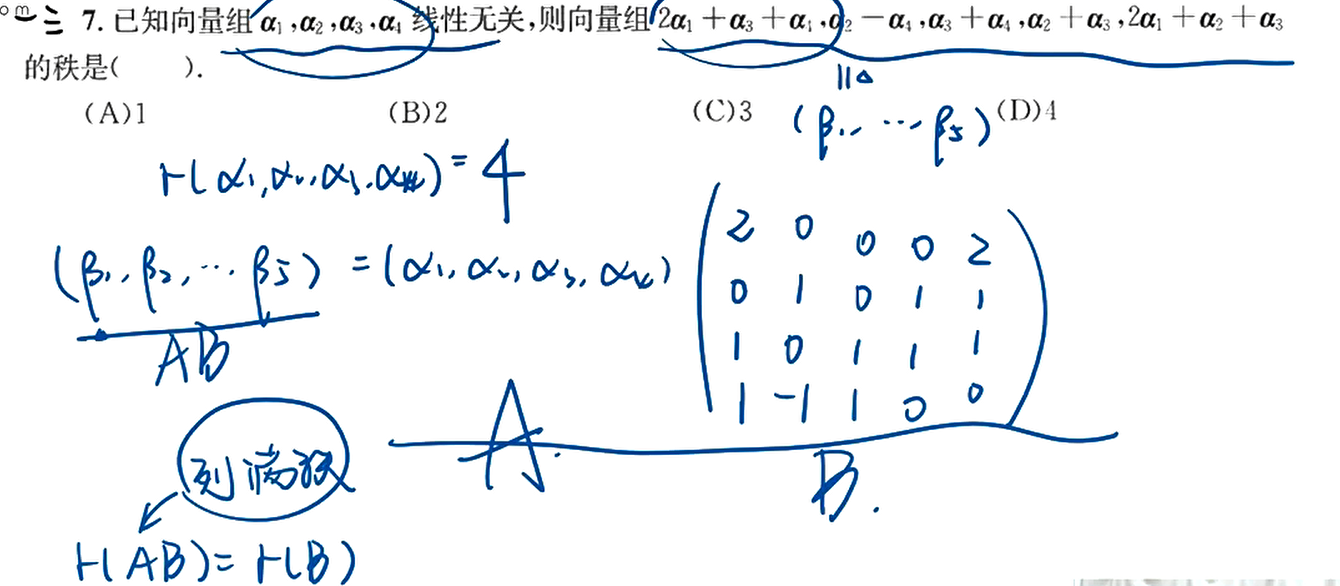 7. 已知向量组 α₁,α₂,α₃,α₄ 线性无关,则向量组 2α₁+α₃+α₄,α₂-α₄,α₃+α₄,α₂+α₃,2α₁+α₂+α₃
的秩是( ).
(A)1 (B)2 (C)3 (D)4
(β₁, ⋯, β₅)
r(α₁,α₂,α₃,α₄)=4
(β₁,β₂,⋯β₅) = (α₁,α₂,α₃,α₄)
2 0 0 0 2
0 1 0 1 1
1 0 1 1 1
1 -1 1 0 0
AB
A.
B.
列满秩
r(AB)=r(B)